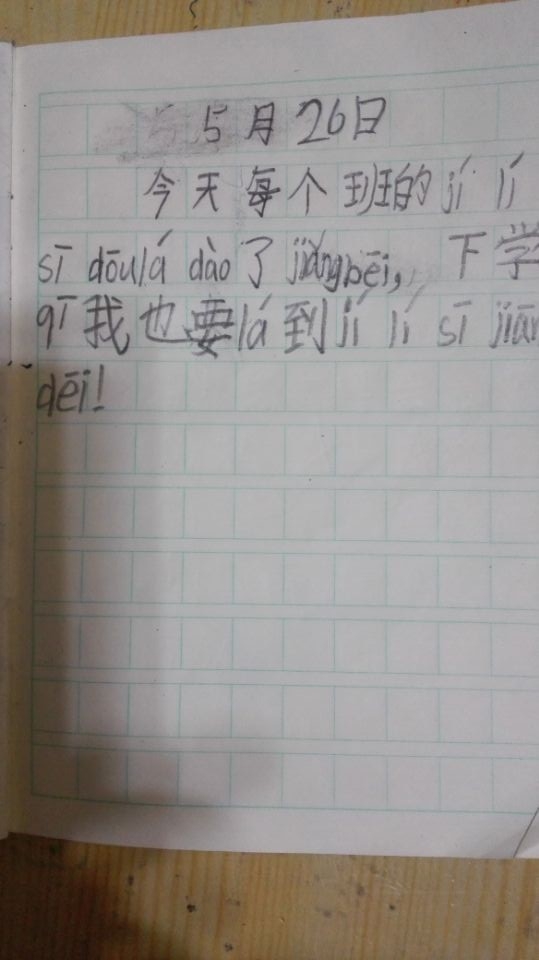 5月26日
今天每个班的jí lí
sī dōulá dào了jiǎngbēi，下学
qī我也要lá到jí lí sī jiǎn
dēi！